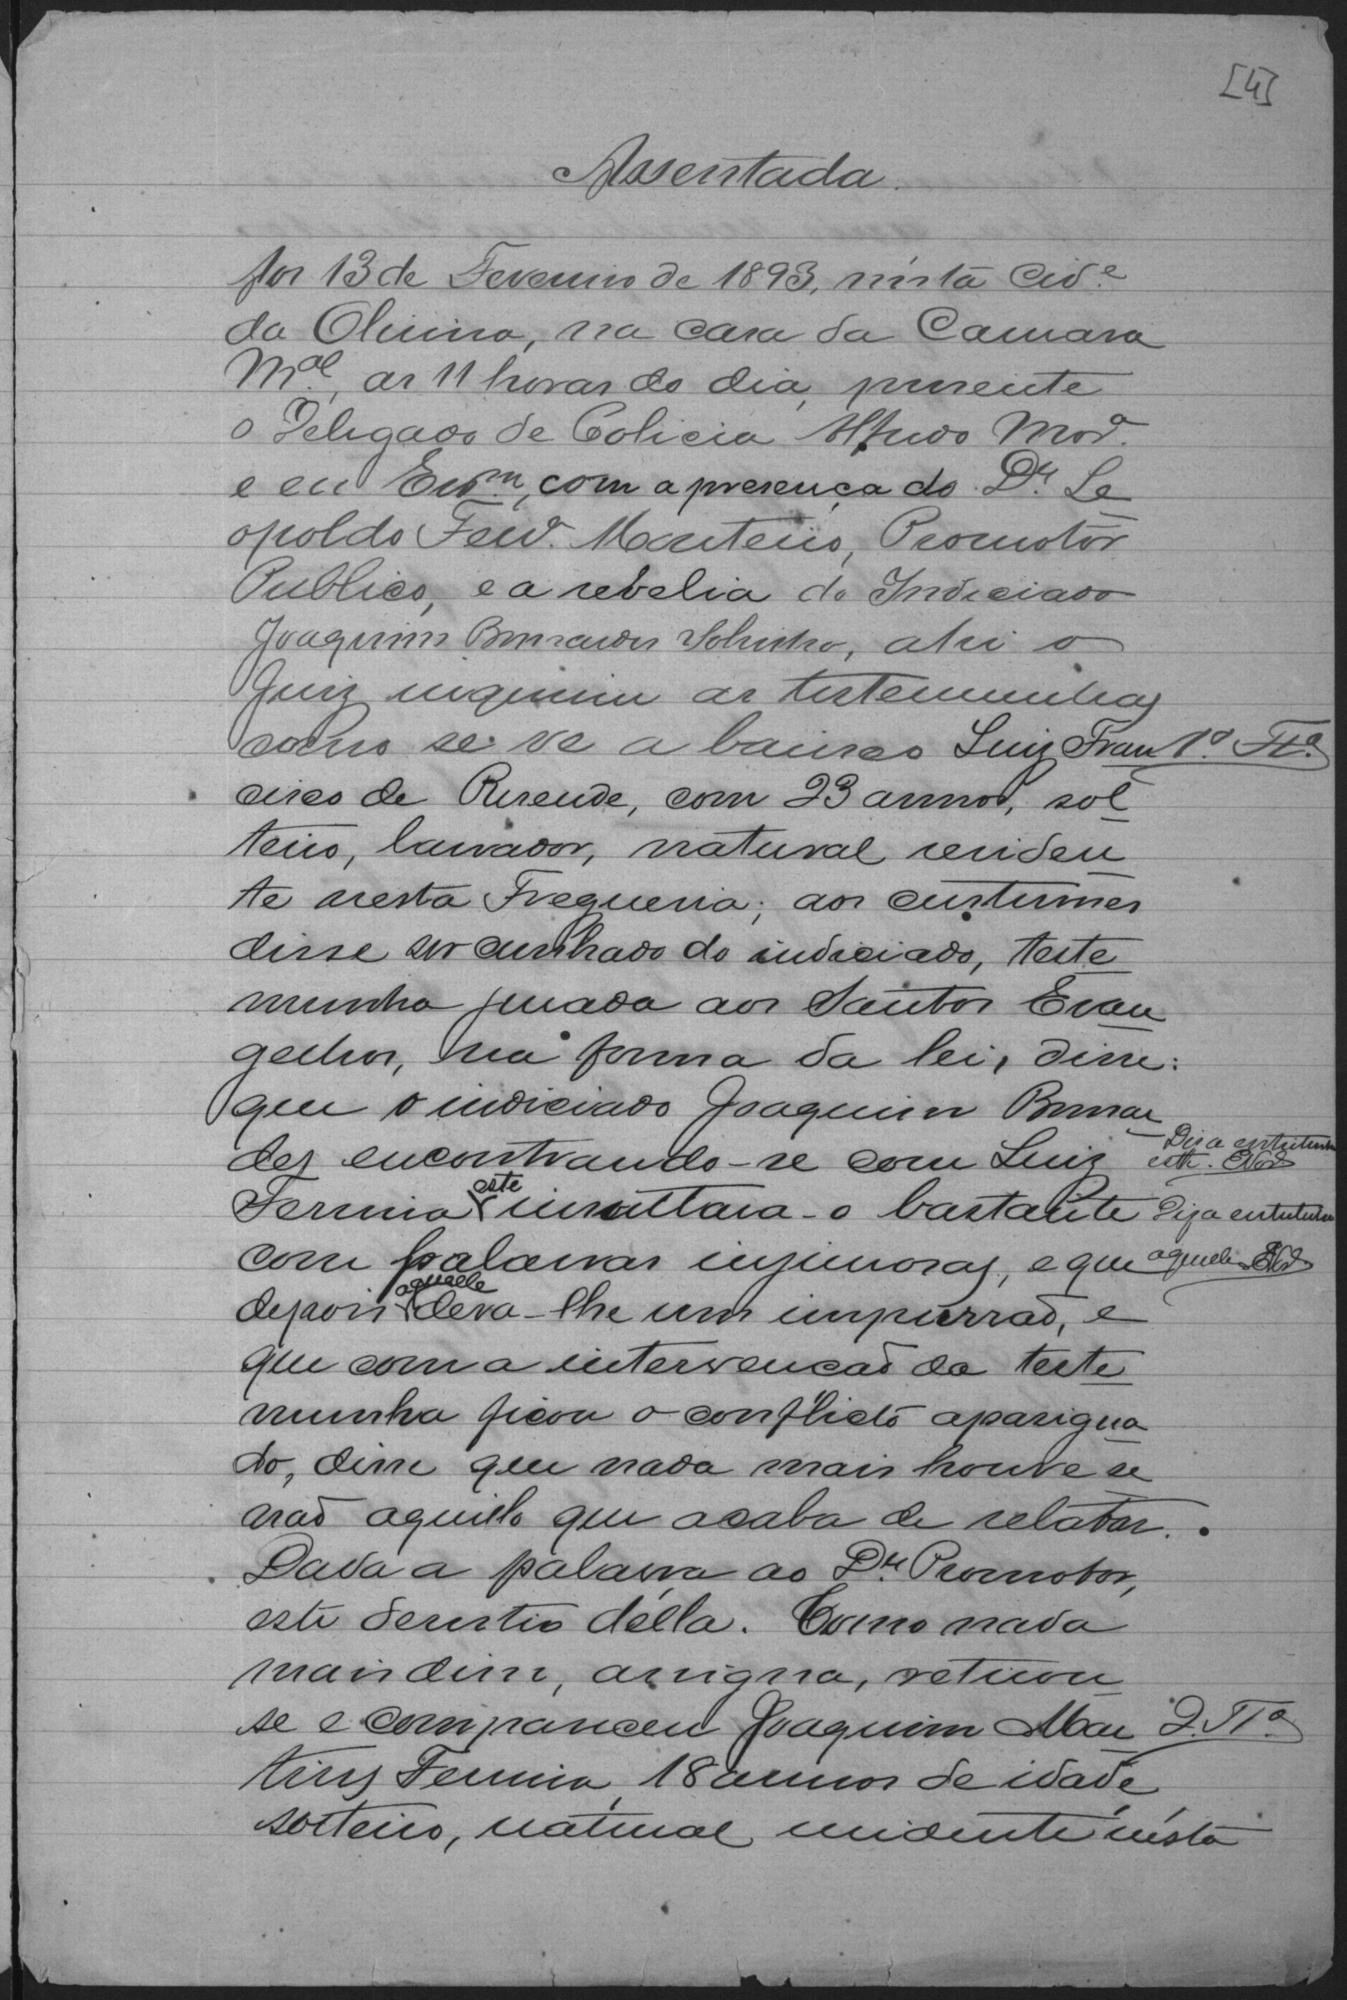 [4]
Assentada.
Aos 13 de Fevereiro de 1893, nesta Cid.e
da Oliveira, na casa da Camara
M.al, as 11 horas do dia, presente
o Delegado de Policia Alfredo
e eu Escr.m, com a presença do D.r Le
opoldo Ferr.a Monteiro, Promotor
Publico, e a rebelia do Indiciado
Joaquim Bernardes Sobrinho, ahi o
Juiz inquiriu as testemunhas
como se vê a baixo Luiz Fran 1.a Tt.a
cisco de Resende, com 23 annos, sol
teiro, lavrador, natural residen
te nesta Freguesia; aos custumes
disse ser cunhado do indiciado, teste
munha jurada aos Santos Evan
gelhos, na forma da lei, disse:
que o indiciado Joaquim Bernar
des encontrando-se com Luiz
Diga entrelinha
este.
Ferreira este insultara-o bastante
Diga entrelinha
com palavras injuriosas, e que
aquelle
depois aquelle dera-lhe um impurrão, e
que com a intervencão da teste
munha ficou o conflicto apasigua
do, disse que nada mais houve se
não aquillo que acaba de relatar.
Dada a palavra ao D.r Promotor,
este desistio della. Como nada
mais disse, assigna, retirou
se e compareceu Joaquim Mar 2. Tt.a
tins Ferreira, 18 annos de idade,
solteiro, natural residente nesta